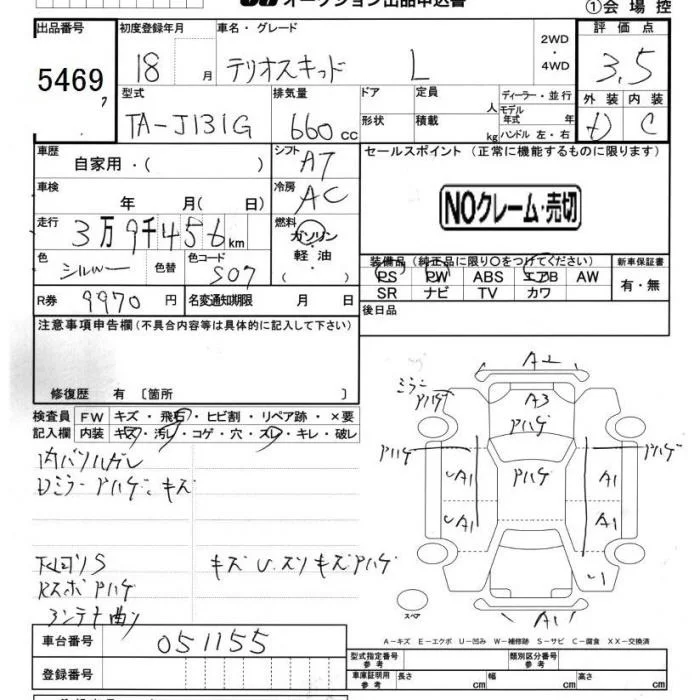 オークション出品申込書
①会場控
出品番号
5469
初度登録年月
18 月
車名・グレード
テリオスキッド L
2WD
・
4WD
評価点
3,5
外装 内装
D C
型式
TA-J131G
排気量
660 cc
ドア
定員 人
形状
積載 kg
ディーラー・並行
モデル年式 年
ハンドル 左・右
車歴
自家用・( )
シフト
AT
セールスポイント (正常に機能するものに限ります)
NOクレーム・売切
車検
年 月( 日)
冷房
AC
走行
3万9千456 km
燃料
ガソリン
・
軽油
( )
色
シルバー
色替
色コード
S07
装備品 (純正品に限り○をつけてください)
PS PW ABS エアB AW
SR ナビ TV カワ
新車保証書
有・無
R券 9970 円
名変通知期限 月 日
後日品
注意事項申告欄(不具合内容等は具体的に記入して下さい)
修復歴 有 〔箇所 〕
検査員記入欄
FW キズ・飛石・ヒビ割・リペア跡・×要
内装 キズ・汚レ・コゲ・穴・スレ・キレ・破レ
Dミラー Pハゲ、キズ
下回りS
キズ U.スリキズPハゲ
Rスポ Pハゲ
アンテナ曲り
A2
ミラー
Pハゲ
A3
Pハゲ
Pハゲ
Pハゲ
Pハゲ
UA1
A1
UA1
A1
U1
A1
スペア
A-キズ E-エクボ U-凹み W-補修跡 S-サビ C-腐食 XX-交換済
車台番号
051155
登録番号
型式指定番号 参考
類別区分番号 参考
車庫証明用 参考
長さ cm
幅 cm
高さ cm